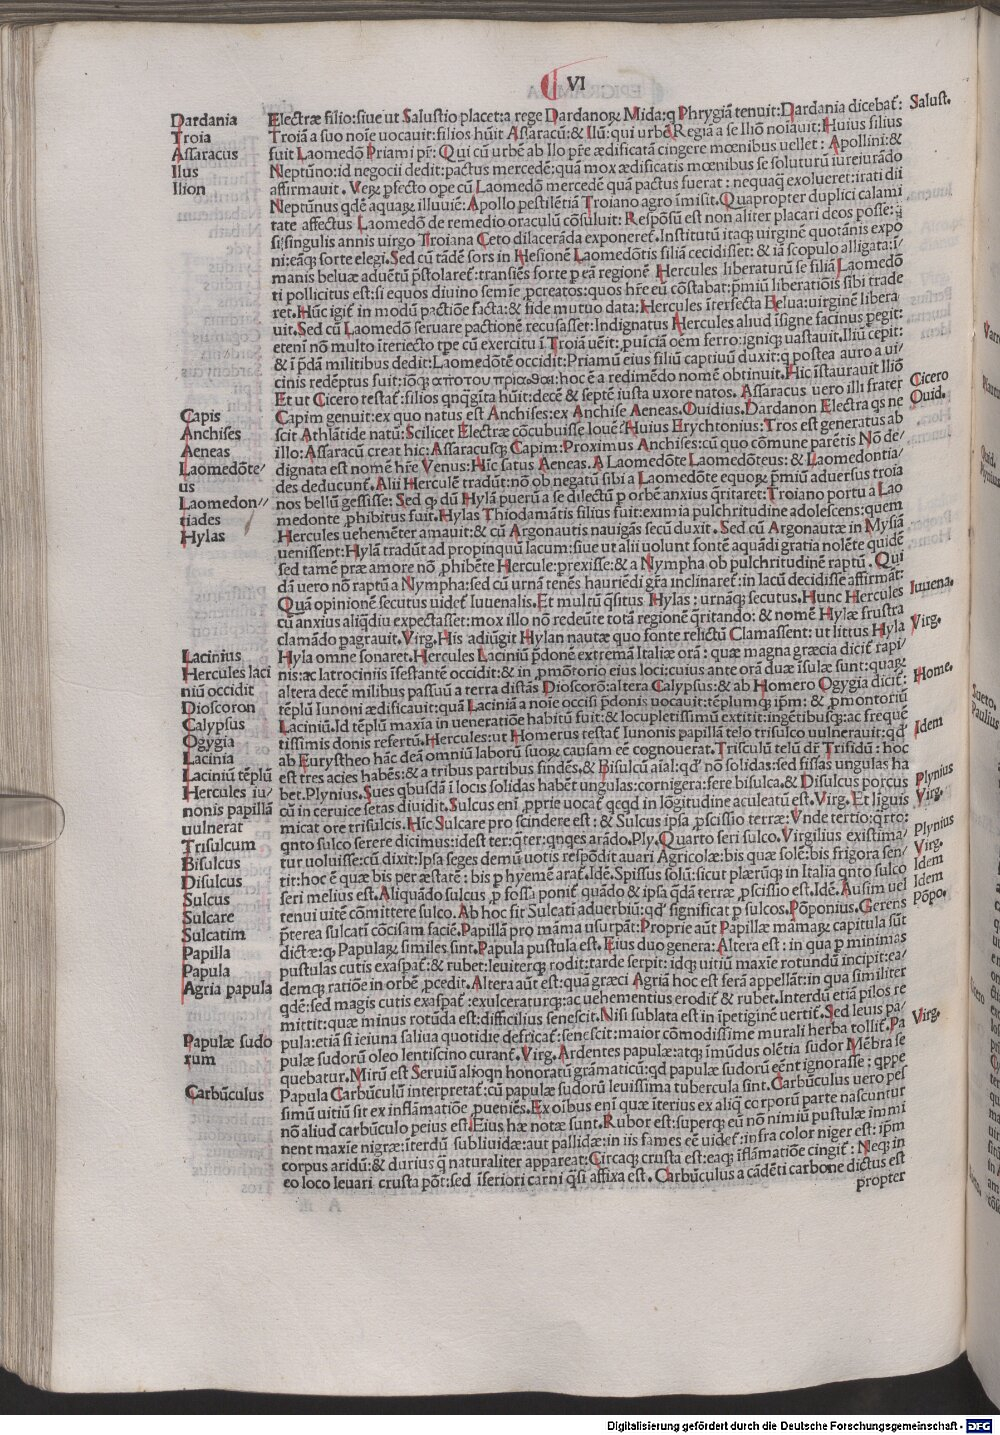 VI
Dardania
Troia
Assaracus
Ilus
Ilion
Capis
Anchises
Aeneas
Laomedōte/
us
Laomedon//
tiades
Hylas
Lacinius
Hercules laci
niū occidit
Dioscoron
Calypsus
Ogygia
Lacinia
Laciniū tēplū
Hercules iu/
nonis papillā
uulnerat
Trisulcum
Bisulcus
Disulcus
Sulcus
Sulcare
Sulcatim
Papilla
Papula
Agria papula
Papulæ sudo
rum
Carbūculus
Electræ filio: siue ut Salustio placet: a rege Dardanoꝝ Mida: q Phrygiā tenuit: Dardania dicebat᷑:
Troiā a suo noīe uocauit: filios hūit Assaracū: & Ilū: qui urbē Regiā a se Iliō noīauit: Huius filius
fuit Laomedō Priami pr̄: Qui cū urbē ab Ilo pr̄e ædificatā cingere mœnibus uellet: Apollini: &
Neptūno: id negocii dedit: pactus mercedē: quā mox ædificatis mœnibus se soluturū iureiurādo
affirmauit. Veꝝ ꝓfecto ope cū Laomedō mercedē quā pactus fuerat: nequaq̄ exolueret: irati dii
Neptūnus qdē aquaꝝ illuuiē: Apollo pestilētiā Troiano agro īmisit. Quapropter duplici calami
tate affectus Laomedō de remedio oraculū cōsuluit: Respōsū est non aliter placari deos posse:
si singulis annis uirgo Troiana Ceto dilacerāda exponeret᷑. Institutū itaq; uirginē quotānis expo
ni: eāq; sorte elegi. Sed cū tādē sors in Hesionē Laomedōtis filiā cecidisset: & iā scopulo alligata: ī
manis beluæ aduētū p̄stolaret᷑: transiēs forte p eā regionē Hercules liberaturū se filiā Laomedō
ti pollicitus est: si equos diuino semīe ꝓcreatos: quos hr̄e eū cōstabat: p̄miū liberatiōis sibi trade
ret. Hūc igit᷑ in modū pactiōe facta: & fide mutuo data: Hercules īterfecta Belua: uirginē libera
uit. Sed cū Laomedō seruare pactionē recusasset: Indignatus Hercules aliud īsigne facinus pegit:
etenī nō multo īteriecto tpe cū exercitu ī Troiā uēit: ꝓuīciā oēm ferro: igniq; uastauit. Iliū cepit:
& ī p̄dā militibus dedit: Laomedōtē occidit: Priamū eius filiū captiuū duxit: q postea auro a ui/
cinis redēptus fuit: īoq; αποτου πριαϑαι: hoc ē a redimēdo nomē obtinuit. Hic īstaurauit Iliō
Et ut Cicero testat᷑: filios qnqgīta hūit: decē & septē iusta uxore natos. Assaracus uero illi frater
Capim genuit: ex quo natus est Anchises: ex Anchise Aeneas. Ouidius. Dardanon Electra qs ne
scit Athlātide natū: Scilicet Electræ cōcubuisse Ioue? Huius Erychtonius: Tros est generatus ab
illo: Assaracū creat hic: Assaracusq; Capim: Proximus Anchises: cū quo cōmune parētis Nō de/
dignata est nomē hr̄e Venus: Hīc satus Aeneas. A Laomedōte Laomedōteus: & Laomedontia/
des deducunt᷑. Alii Herculē tradūt: nō ob negatū sibi a Laomedōte equoꝝ p̄miū aduersus troia
nos bellū gessisse: Sed q; dū Hylā puerū a se dilectū p orbē anxius q̄ritaret: Troiano portu a Lao
medonte ꝓhibitus fuit. Hylas Thiodamātis filius fuit: eximia pulchritudine adolescens: quem
Hercules uehemēter amauit: & cū Argonautis nauigās secū duxit. Sed cū Argonautæ in Mysiā
uenissent: Hylā tradūt ad propinquū lacum: siue ut alii uolunt fontē aquādi gratia nolēte quidē
sed tamē præ amore nō ꝓhibēte Hercule: prexisse: & a Nympha ob pulchritudinē raptū. Qui
dā uero nō raptū a Nympha: sed cū urnā tenēs hauriēdi gr̄a inclinaret᷑: in lacū decidisse affirmāt:
Quā opinionē secutus uidet᷑ Iuuenalis. Et multū q̄situs Hylas: urnāq; secutus. Hunc Hercules
cū anxius aliq̄diu expectasset: mox illo nō redeūte totā regionē q̄ritando: & nomē Hylæ frustra
clamādo pagrauit. Virg. His adiūgit Hylan nautæ quo fonte relictū Clamassent: ut littus Hyla
Hyla omne sonaret. Hercules Laciniū p̄donē extremā Italiæ orā: quæ magna græcia dicit᷑ rapi/
nis: ac latrociniis īfestantē occidit: & in ꝓmōtorio eius loci: cuius ante orā duæ īsulæ sunt: quaꝝ
altera decē milibus passuū a terra distās Dioscorō: altera Calypsus: & ab Homero Ogygia dicit᷑:
tēplū Iunoni ædificauit: quā Laciniā a noīe occisi p̄donis uocauit: tēplumq; ip̄m: & ꝓmontoriū
Laciniū. Id tēplū maxīa in ueneratiōe habitū fuit: & locupletissimū extitit: ingētibusq; ac frequē
tissimis donis refertū. Hercules: ut Homerus testat᷑ Iunonis papillā telo trisulco uulnerauit: qd'
ab Eurystheo hāc deā omniū laborū suoꝝ causam eē cognouerat. Trisculū telū dr̄ Trifidū: hoc
est tres acies habēs: & a tribus partibus findēs. & Bisulcū aīal: qd' nō solidas: sed fissas ungulas ha
bet. Plynius. Sues qbusdā ī locis solidas habēt ungulas: cornigera: fere bisulca. & Disulcus porcus
cū in ceruice setas diuidit. Sulcus enī ꝓprie uocat᷑ qcqd in lōgitudine aculeatū est. Virg. Et liguis
micat ore trisulcis. Hīc Sulcare pro scindere est: & Sulcus ipsa ꝓscissio terræ: Vnde tertio: q̄rto:
qnto sulco serere dicimus: idest ter: q̄ter: qnqes arādo. Ply. Quarto seri sulco. Virgilius existima/
tur uoluisse: cū dixit: Ipsa seges demū uotis respōdit auari Agricolæ: bis quæ solē: bis frigora sen/
tit: hoc ē quæ bis per æstatē: bis p hyemē arat᷑. Idē. Spissus solū: sicut plærūq; in Italia qnto sulco
seri melius est. Aliquādo sulcus ꝓ fossa ponit᷑ quādo & ipsa q̄dā terræ ꝓscissio est. Idē. Ausim uel
tenui uitē cōmittere sulco. Ab hoc fit Sulcati aduerbiū: qd' significat p sulcos. Pōponius. Gerens
p̄terea sulcatī cōcisam faciē. Papillā pro māma usurpāt: Proprie aūt Papillæ mamaꝝ capitula sūt
dictæ: q; Papulaꝝ similes sint. Papula pustula est. Eius duo genera: Altera est: in qua p minimas
pustulas cutis exaspat᷑: & rubet: leuiterq; rodit: tarde serpit: idq; uitiū maxīe rotundū incipit: ea/
demq; ratiōe in orbē ꝓcedit. Altera aūt est: quā græci Agriā hoc est ferā appellāt: in qua similiter
qdē: sed magis cutis exaspat᷑: exulceraturq;: ac uehementius erodit᷑ & rubet. Interdū etiā pilos re
mittit: quæ minus rotūda est: difficilius senescit. Nisi sublata est in īpetiginē uertit᷑. Sed leuis pa/
pula: etiā si ieiuna saliua quotidie defricat᷑: senescit: maior cōmodissime murali herba tollit᷑. Pa
pulæ sudorū oleo lentiscino curant᷑. Virg. Ardentes papulæ: atq; īmūdus olētia sudor Mēbra se
quebatur. Mirū est Seruiū alioqn honoratū grāmaticū: qd papulæ sudorū eēnt ignorasse: qppe
Papula Carbūculū interpretat᷑: cū papulæ sudorū leuissima tubercula sint. Carbūculus uero pes
simū uitiū sit ex inflāmatiōe ꝓueniēs. Ex oībus enī quæ īterius ex aliq̄ corporū parte nascuntur
nō aliud carbūculo peius est. Eius hæ notæ sunt. Rubor est: superq; eū nō nimiū pustulæ immi
nent maxīe nigræ: īterdū subliuidæ: aut pallidæ: in iis fames eē uidet᷑: infra color niger est: ip̄m
corpus aridū: & durius q̄ naturaliter appareat: Circaq; crusta est: eaq; īflamatiōe cingit᷑: Neq; in
eo loco leuari crusta pōt: sed īferiori carni q̄si affixa est. Carbūculus a cādēti carbone dictus est
propter
Salust.
Cicero
Ouid.
Iuuena.
Virg.
Home.
Idem
Plynius
Virg.
Plynius
Virg.
Idem
Idem
Pōpo.
Virg.
Digitalisierung gefördert durch die Deutsche Forschungsgemeinschaft - DFG